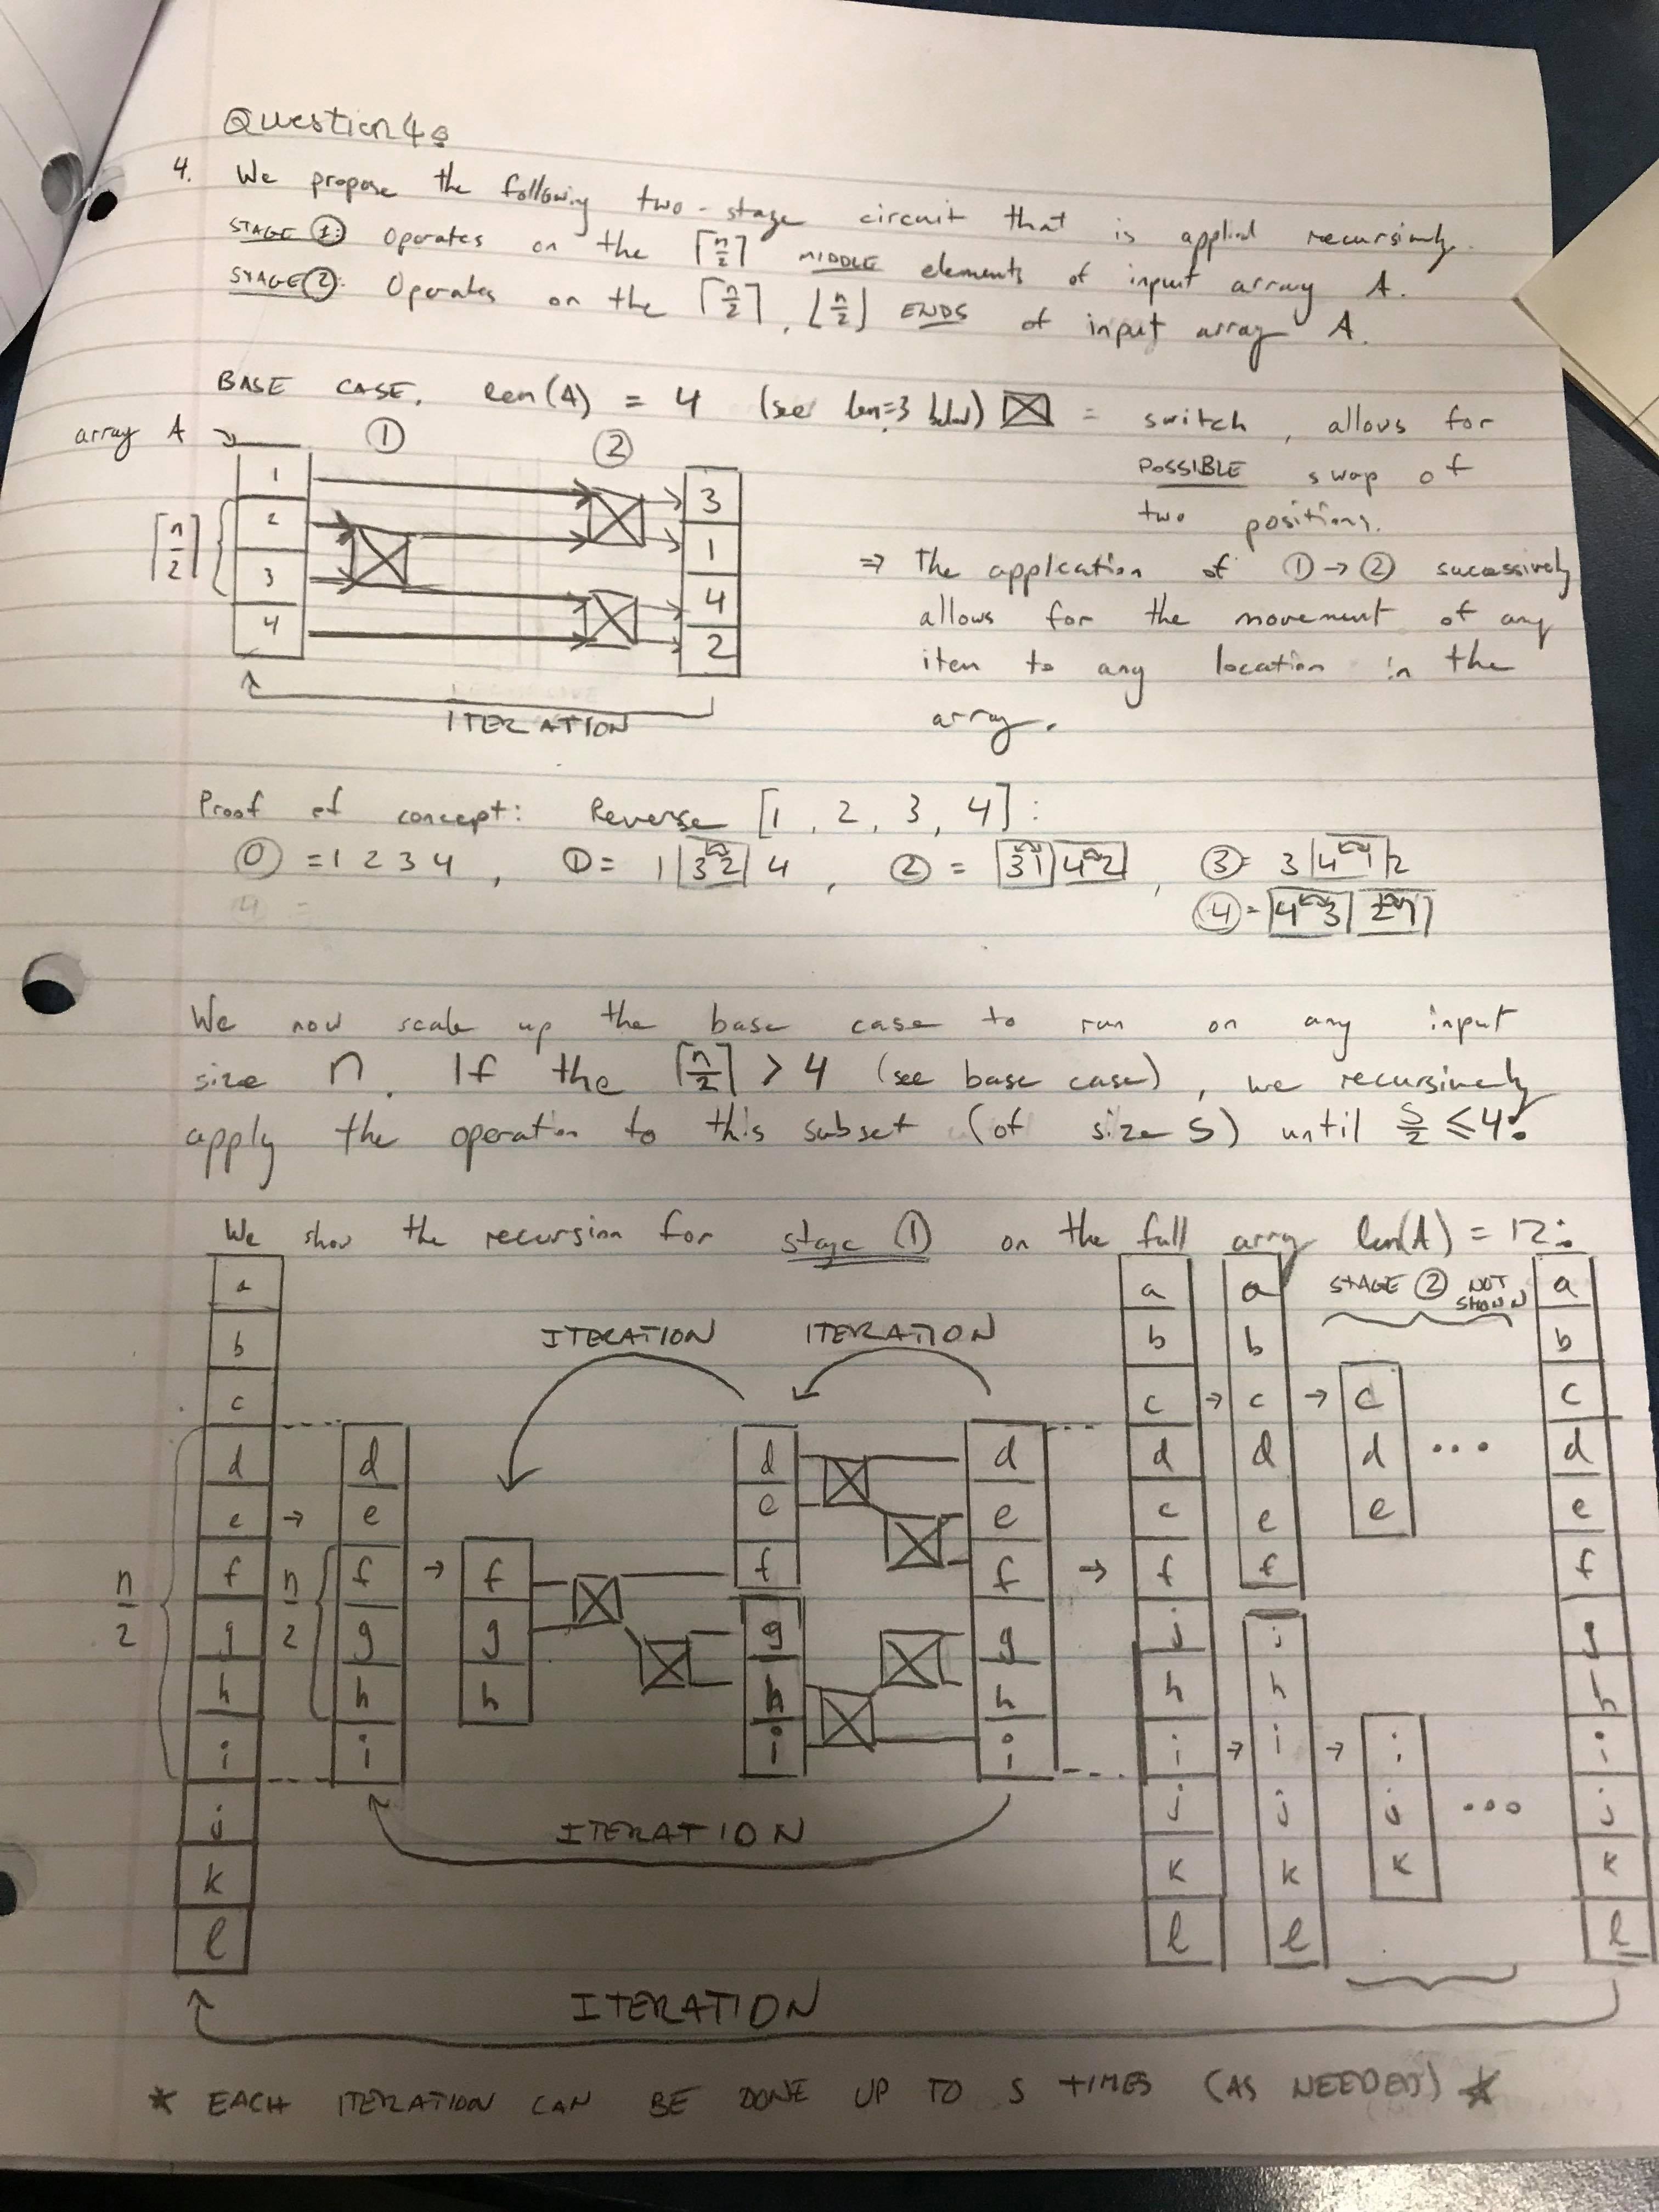 Question 4:
4. We propose the following two-stage circuit that is applied recursively.
STAGE ①: Operates on the ⌈n/2⌉ MIDDLE elements of input array A.
STAGE ②: Operates on the ⌈n/2⌉, ⌊n/2⌋ ENDS of input array A.
BASE CASE, len(A) = 4 (see len=3 below) = switch, allows for
array A ① ②
POSSIBLE swap of
two positions.
1 3
2 1
3 4
4 2
⌈n/2⌉
⇒ The application of ① → ② sucessively
allows for the movement of any
item to any location in the
array.
ITERATION
Proof of concept: Reverse [1, 2, 3, 4]:
⓪ = 1 2 3 4, ① = 1|3 2|4, ② = |3 1|4 2|, ③ = 3|4 1|2
④ = |4 3|2 1|
We now scale up the base case to run on any input
size n. If the ⌈n/2⌉ > 4 (see base case), we recursively
apply the operation to this subset (of size S) until S/2 ≤ 4:
We show the recursion for stage ① on the full array len(A) = 12:
STAGE ② NOT SHOWN
ITERATION ITERATION
a b c d e f g h i j k l
n/2
d e f g h i
n/2
f g h
d e f
g h i
d e f g h i
a b c d e f j h i j k l
a b c d e f
j h i j k l
c d e
i j k
...
...
a b c d e f g h i j k l
ITERATION
ITERATION
* EACH ITERATION CAN BE DONE UP TO S TIMES (AS NEEDED) *